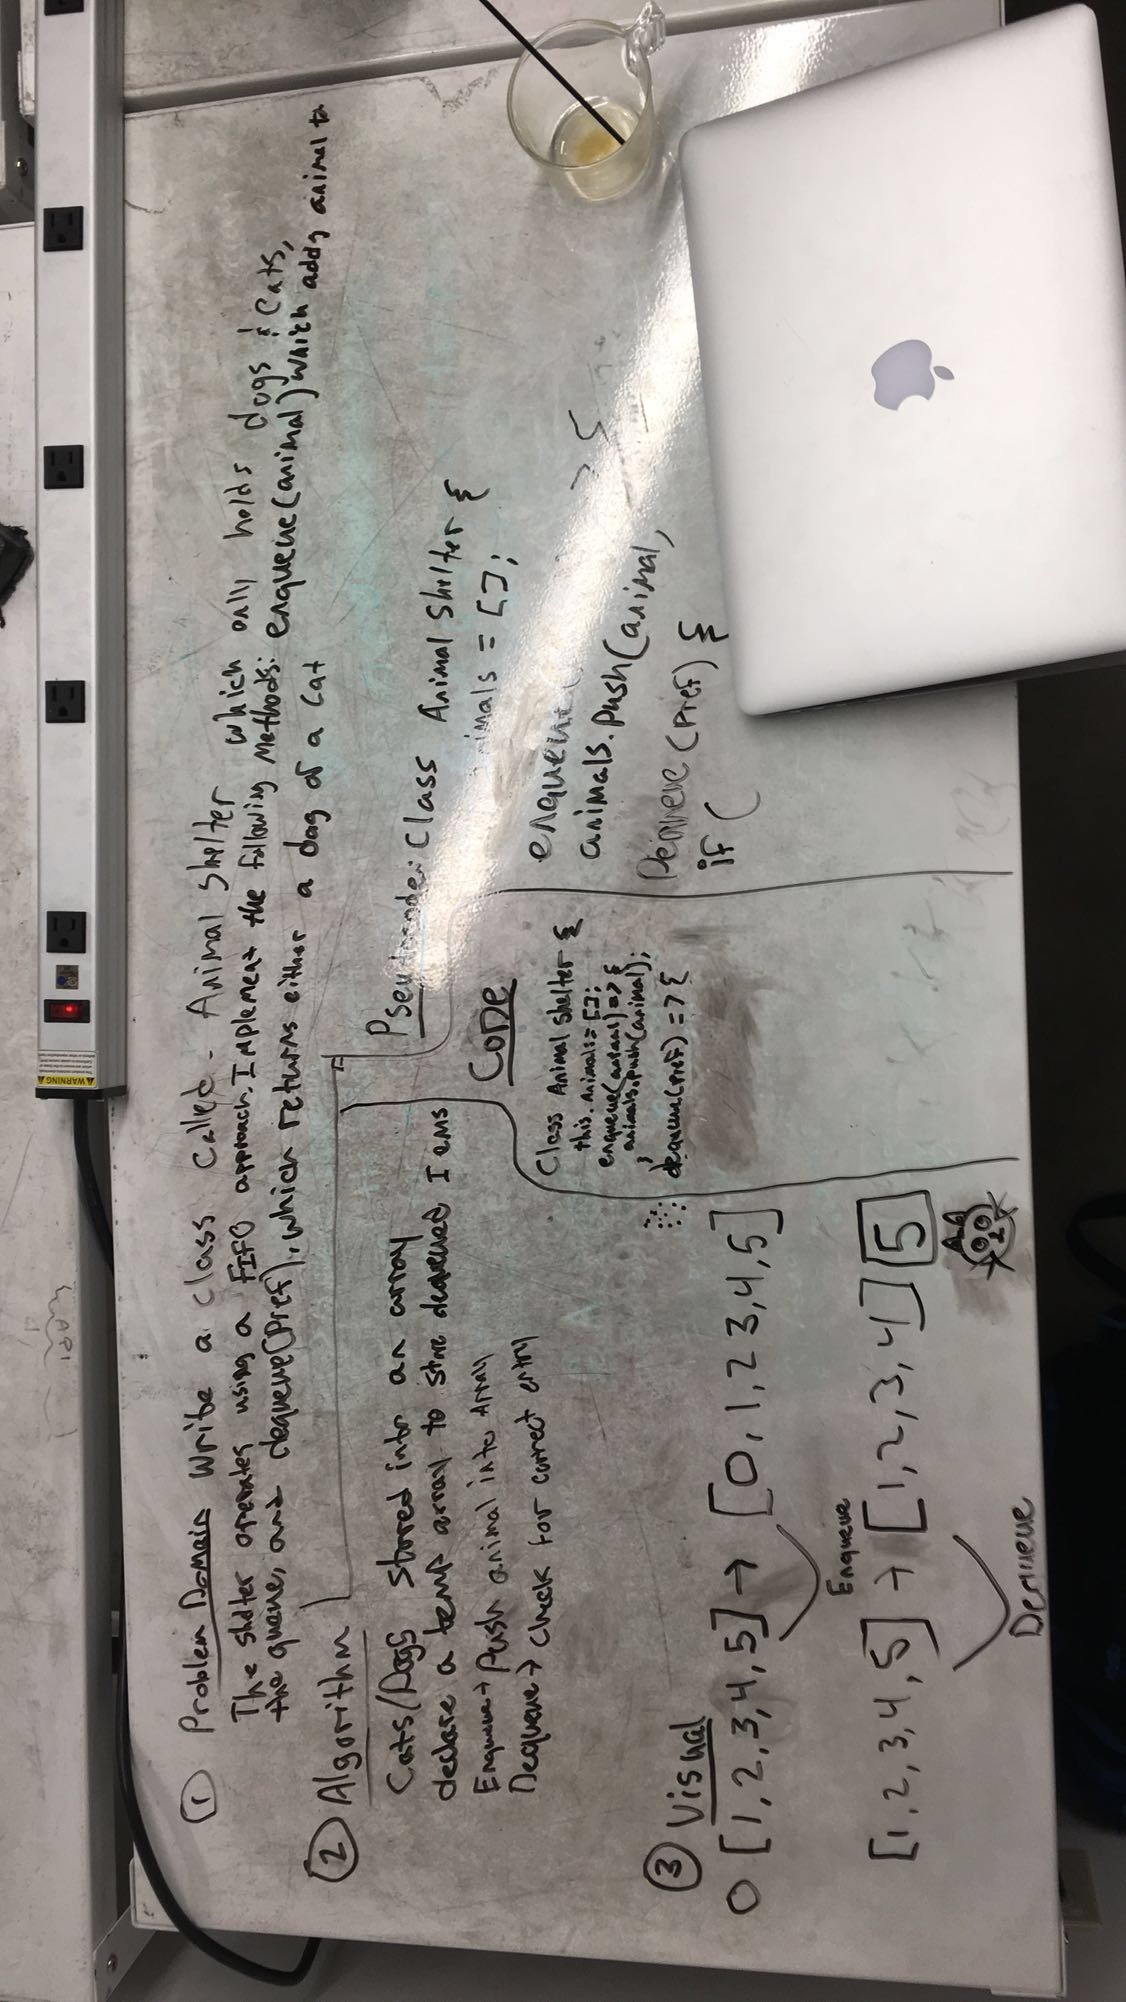 ① Problem Domain Write a class called - Animal Shelter which only holds dogs & cats,
The shelter operates using a FIFO approach. Implement the following methods: enqueue(animal) which adds animal to
the queue, and dequeue(pref), which returns either a dog or a cat
② Algorithm
Cats/Dogs stored into an array
declare a temp array to store dequeued Items
Enqueue → Push animal into Array
Dequeue → check for correct entry
③ Visual
0 [1, 2, 3, 4, 5] → [0, 1, 2 3, 4, 5]
Enqueue
[1, 2, 3, 4, 5] → [1, 2, 3, 4] [5]
Dequeue
Code
Class Animal Shelter {
this.animals = [];
enqueue(animal) => {
animals.push(animal);
}
dequeue(pref) => {
Pseudocode: Class Animal Shelter {
= [];
enqueue
animals.push(animal,
Dequeue (pref) {
if (
WARNING